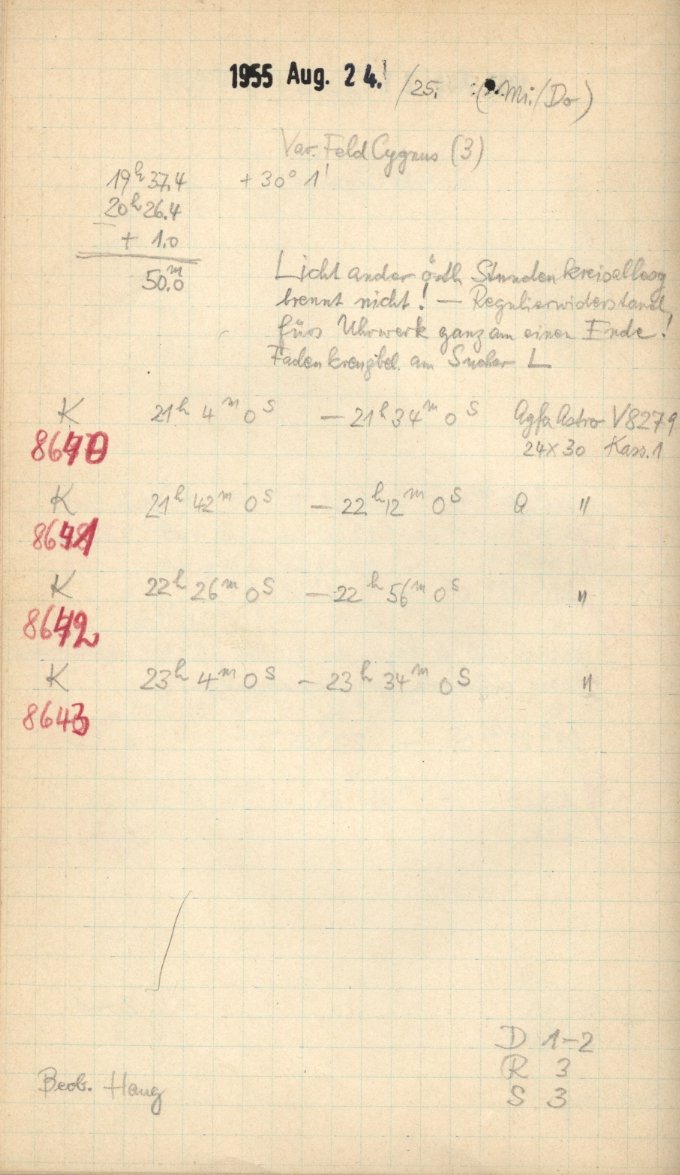 1955 Aug. 24. /25. (Mi./Do)
Var. Feld Cygnus (3)
19h 37.4 +30° 1'
20h 26.4
+ 1.0
50.0m
Licht an der östl. Stundenkreisablesg
brennt nicht! — Regulierwiderstand
fürs Uhrwerk ganz am einen Ende!
Fadenkreuzbel. am Sucher L
K 21h 4m 0s — 21h 34m 0s Agfa Astro V8279
8640 24x30 Kass. 1
K 21h 42m 0s — 22h 12m 0s "
8641
K 22h 26m 0s — 22h 56m 0s "
8642
K 23h 4m 0s — 23h 34m 0s "
8643
D 1-2
R 3
Beob. Haug
S 3